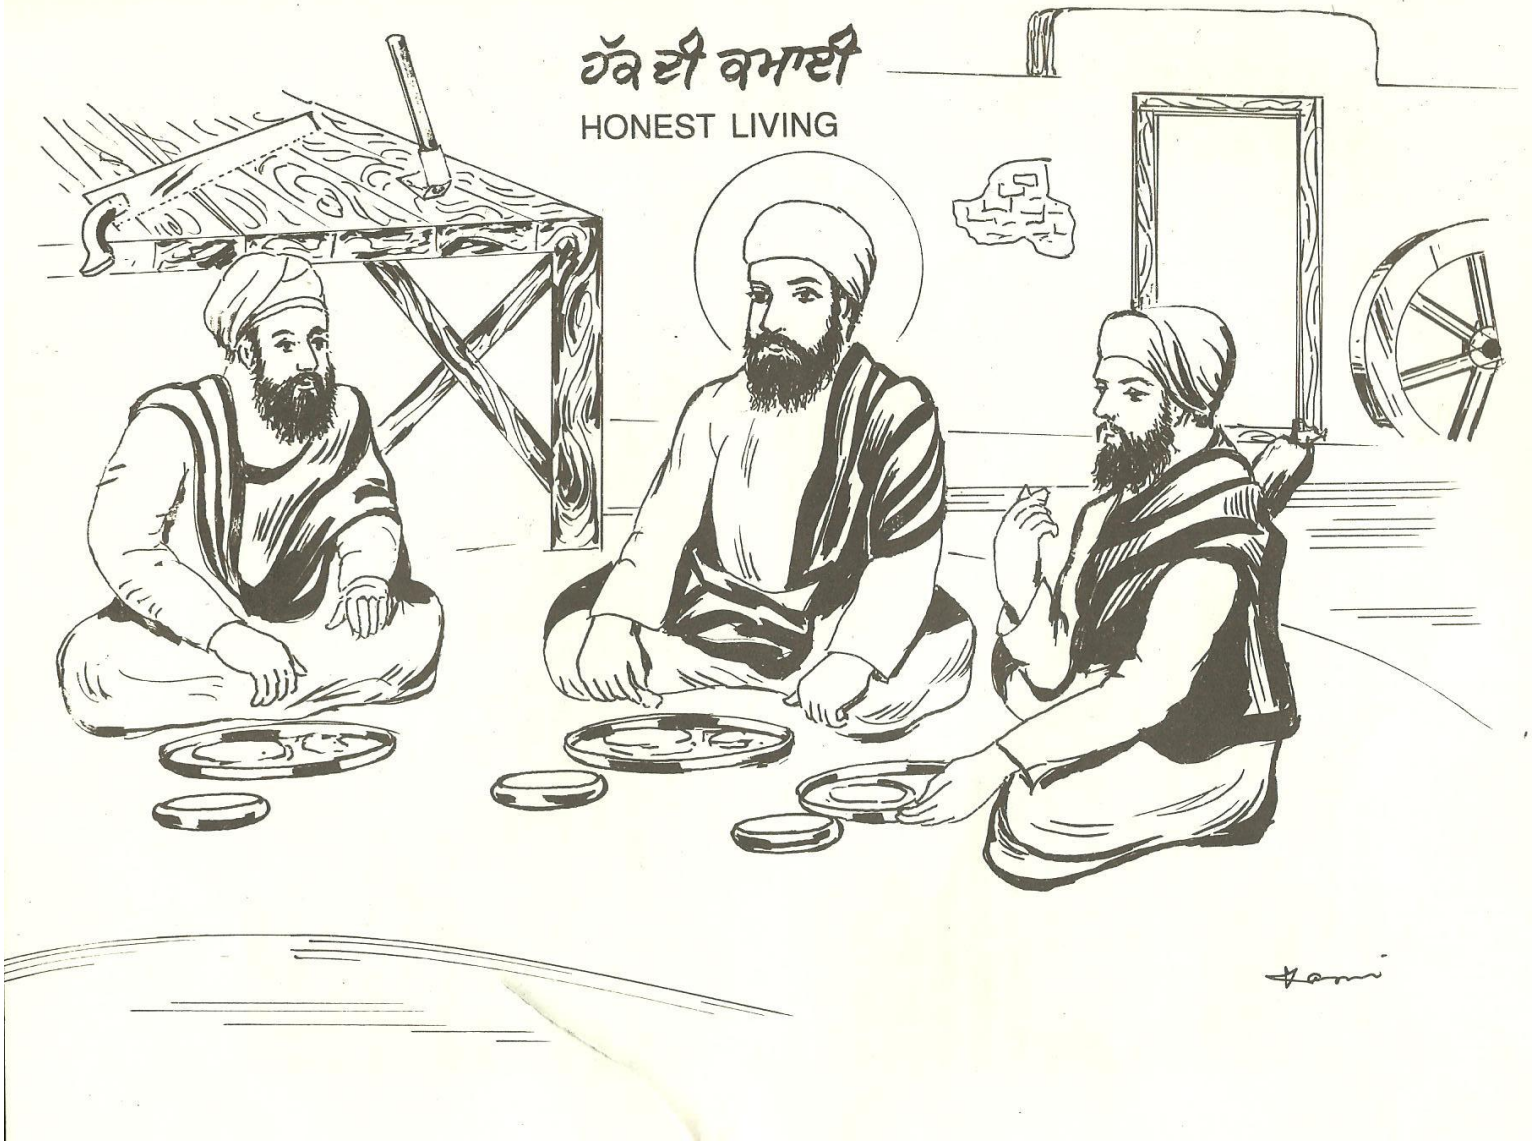 ਹੱਕ ਦੀ ਕਮਾਈ
HONEST LIVING